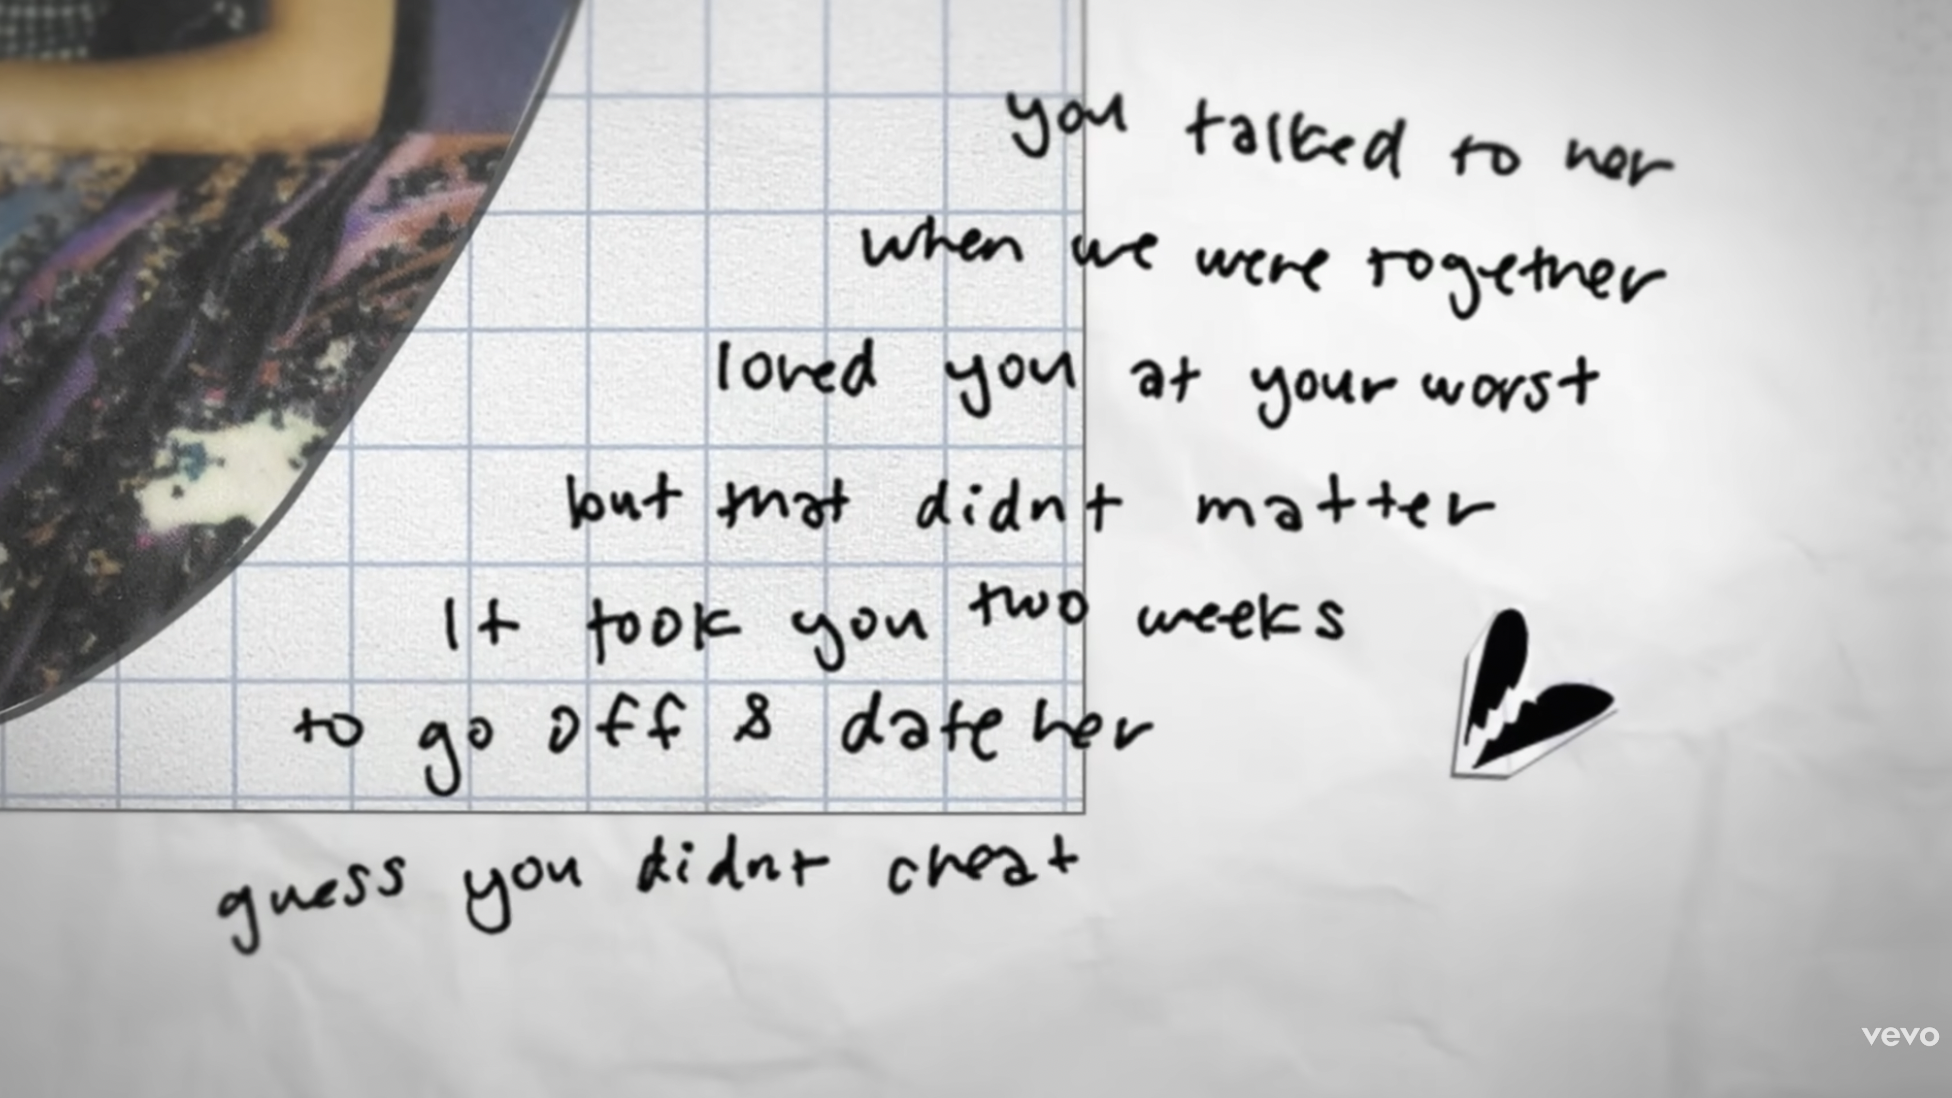 you talked to her
when we were together
loved you at your worst
but that didnt matter
It took you two weeks
to go off & date her
guess you didnt cheat
vevo